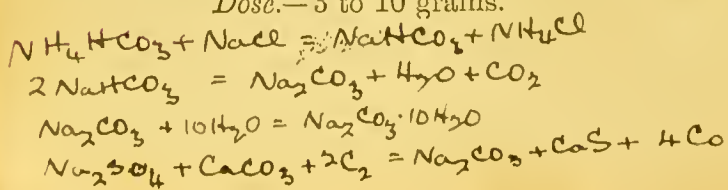 Dose.—5 to 10 grains.
NH4HCO3 + NaCl = NaHCO3 + NH4Cl
2 NaHCO3 = Na2CO3 + H2O + CO2
Na2CO3 + 10H2O = Na2CO3·10H2O
Na2SO4 + CaCO3 + 2C2 = Na2CO3 + CaS + 4Co